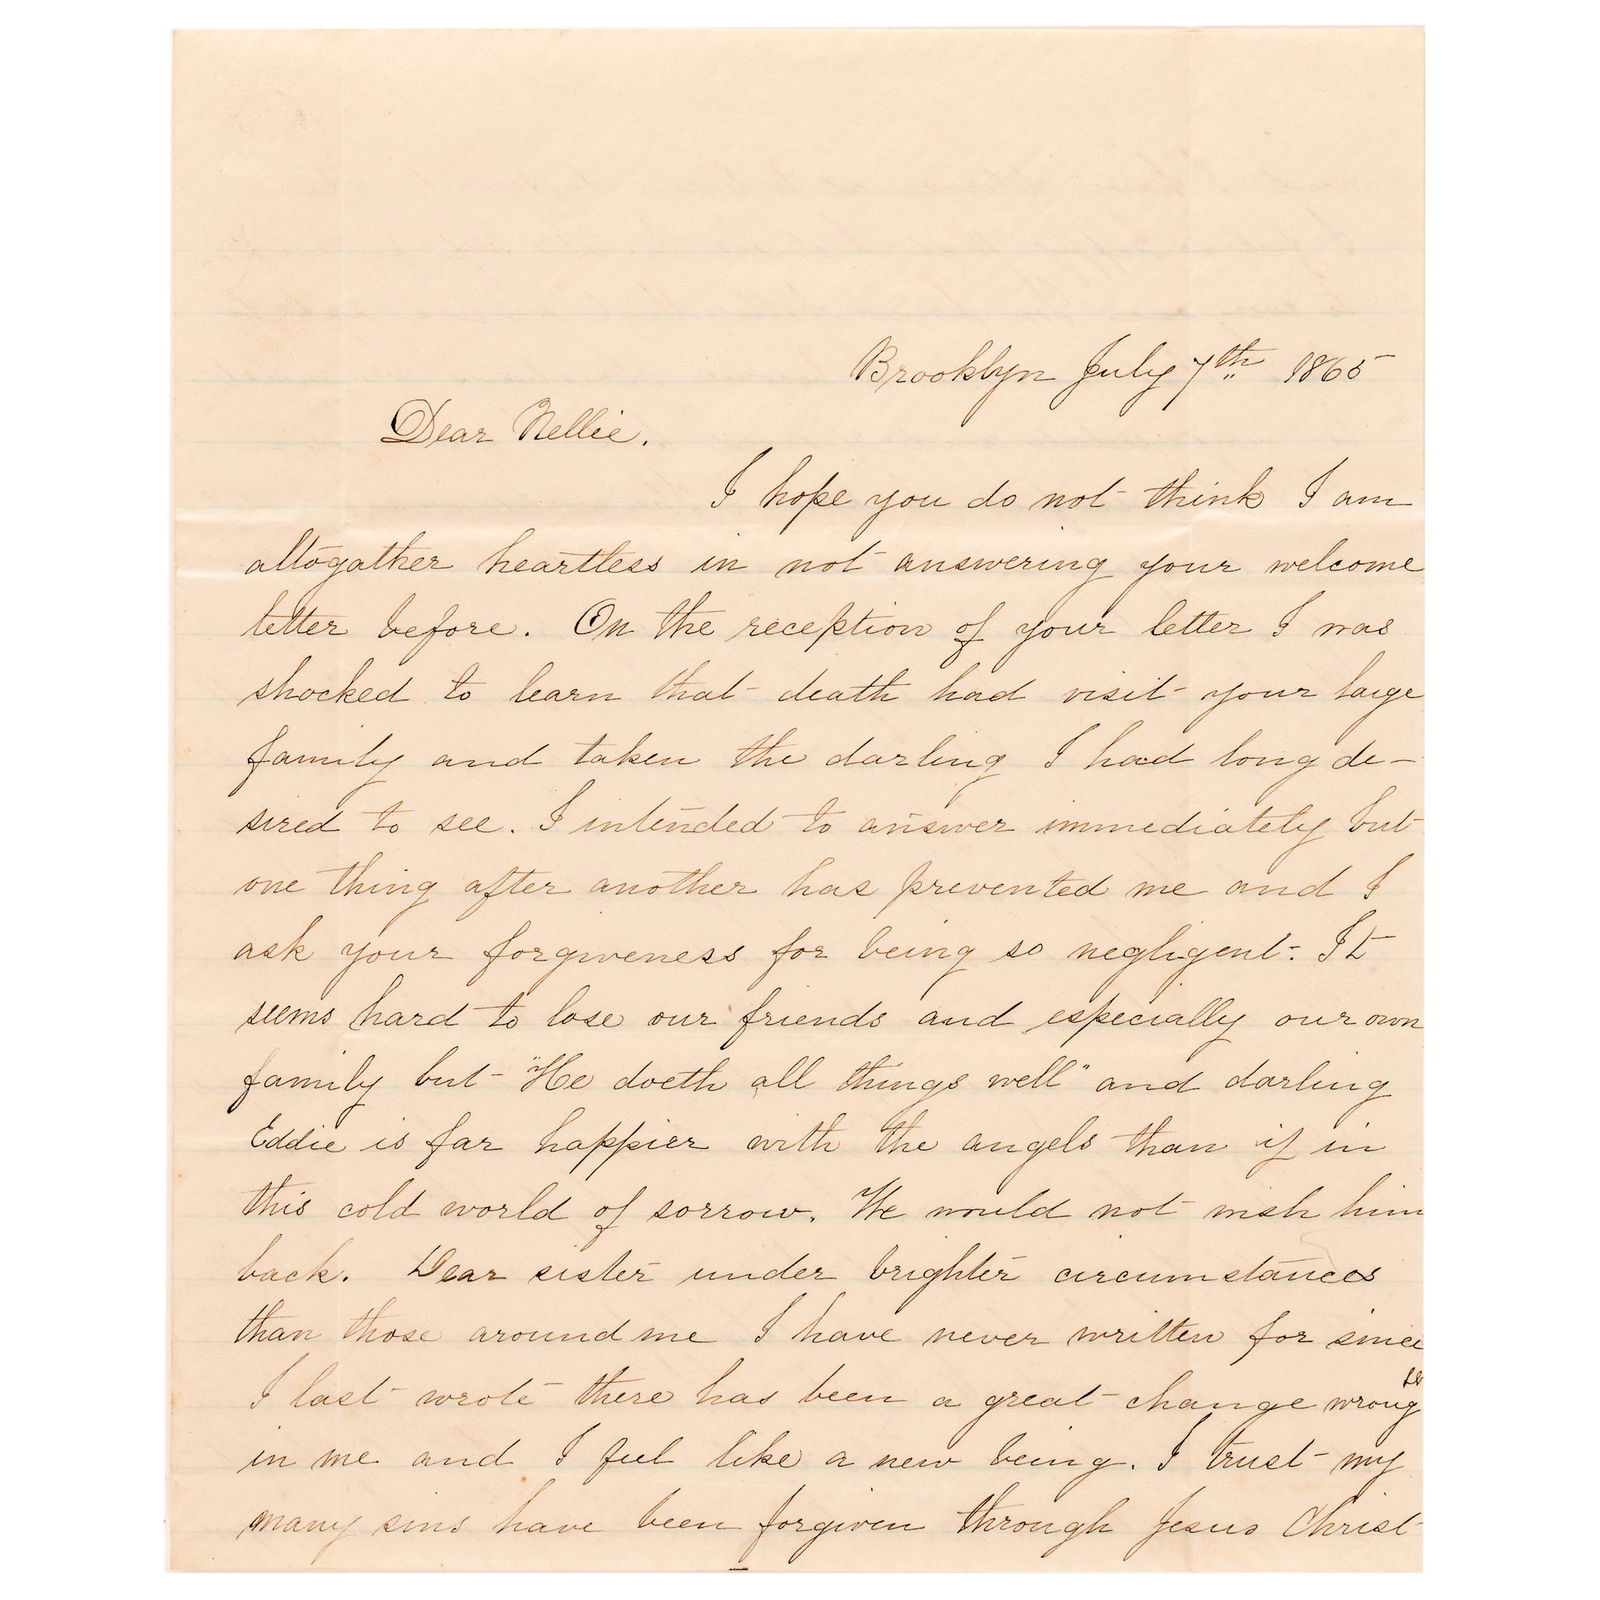 Brooklyn July 7th 1865
Dear Nellie.
I hope you do not think I am
altogather heartless in not answering your welcome
letter before. On the reception of your letter I was
shocked to learn that death had visit your large
family and taken the darling I had long de-
sired to see. I intended to answer immediately but
one thing after another has prevented me and I
ask your forgiveness for being so negligent. It
seems hard to lose our friends and especially our own
family but "He doeth all things well" and darling
Eddie is far happier with the angels than if in
this cold world of sorrow. We would not wish him
back. Dear sister under brighter circumstances
than those around me I have never written for since
I last wrote there has been a great change wrought
in me and I feel like a new being. I trust my
many sins have been forgiven through Jesus Christ